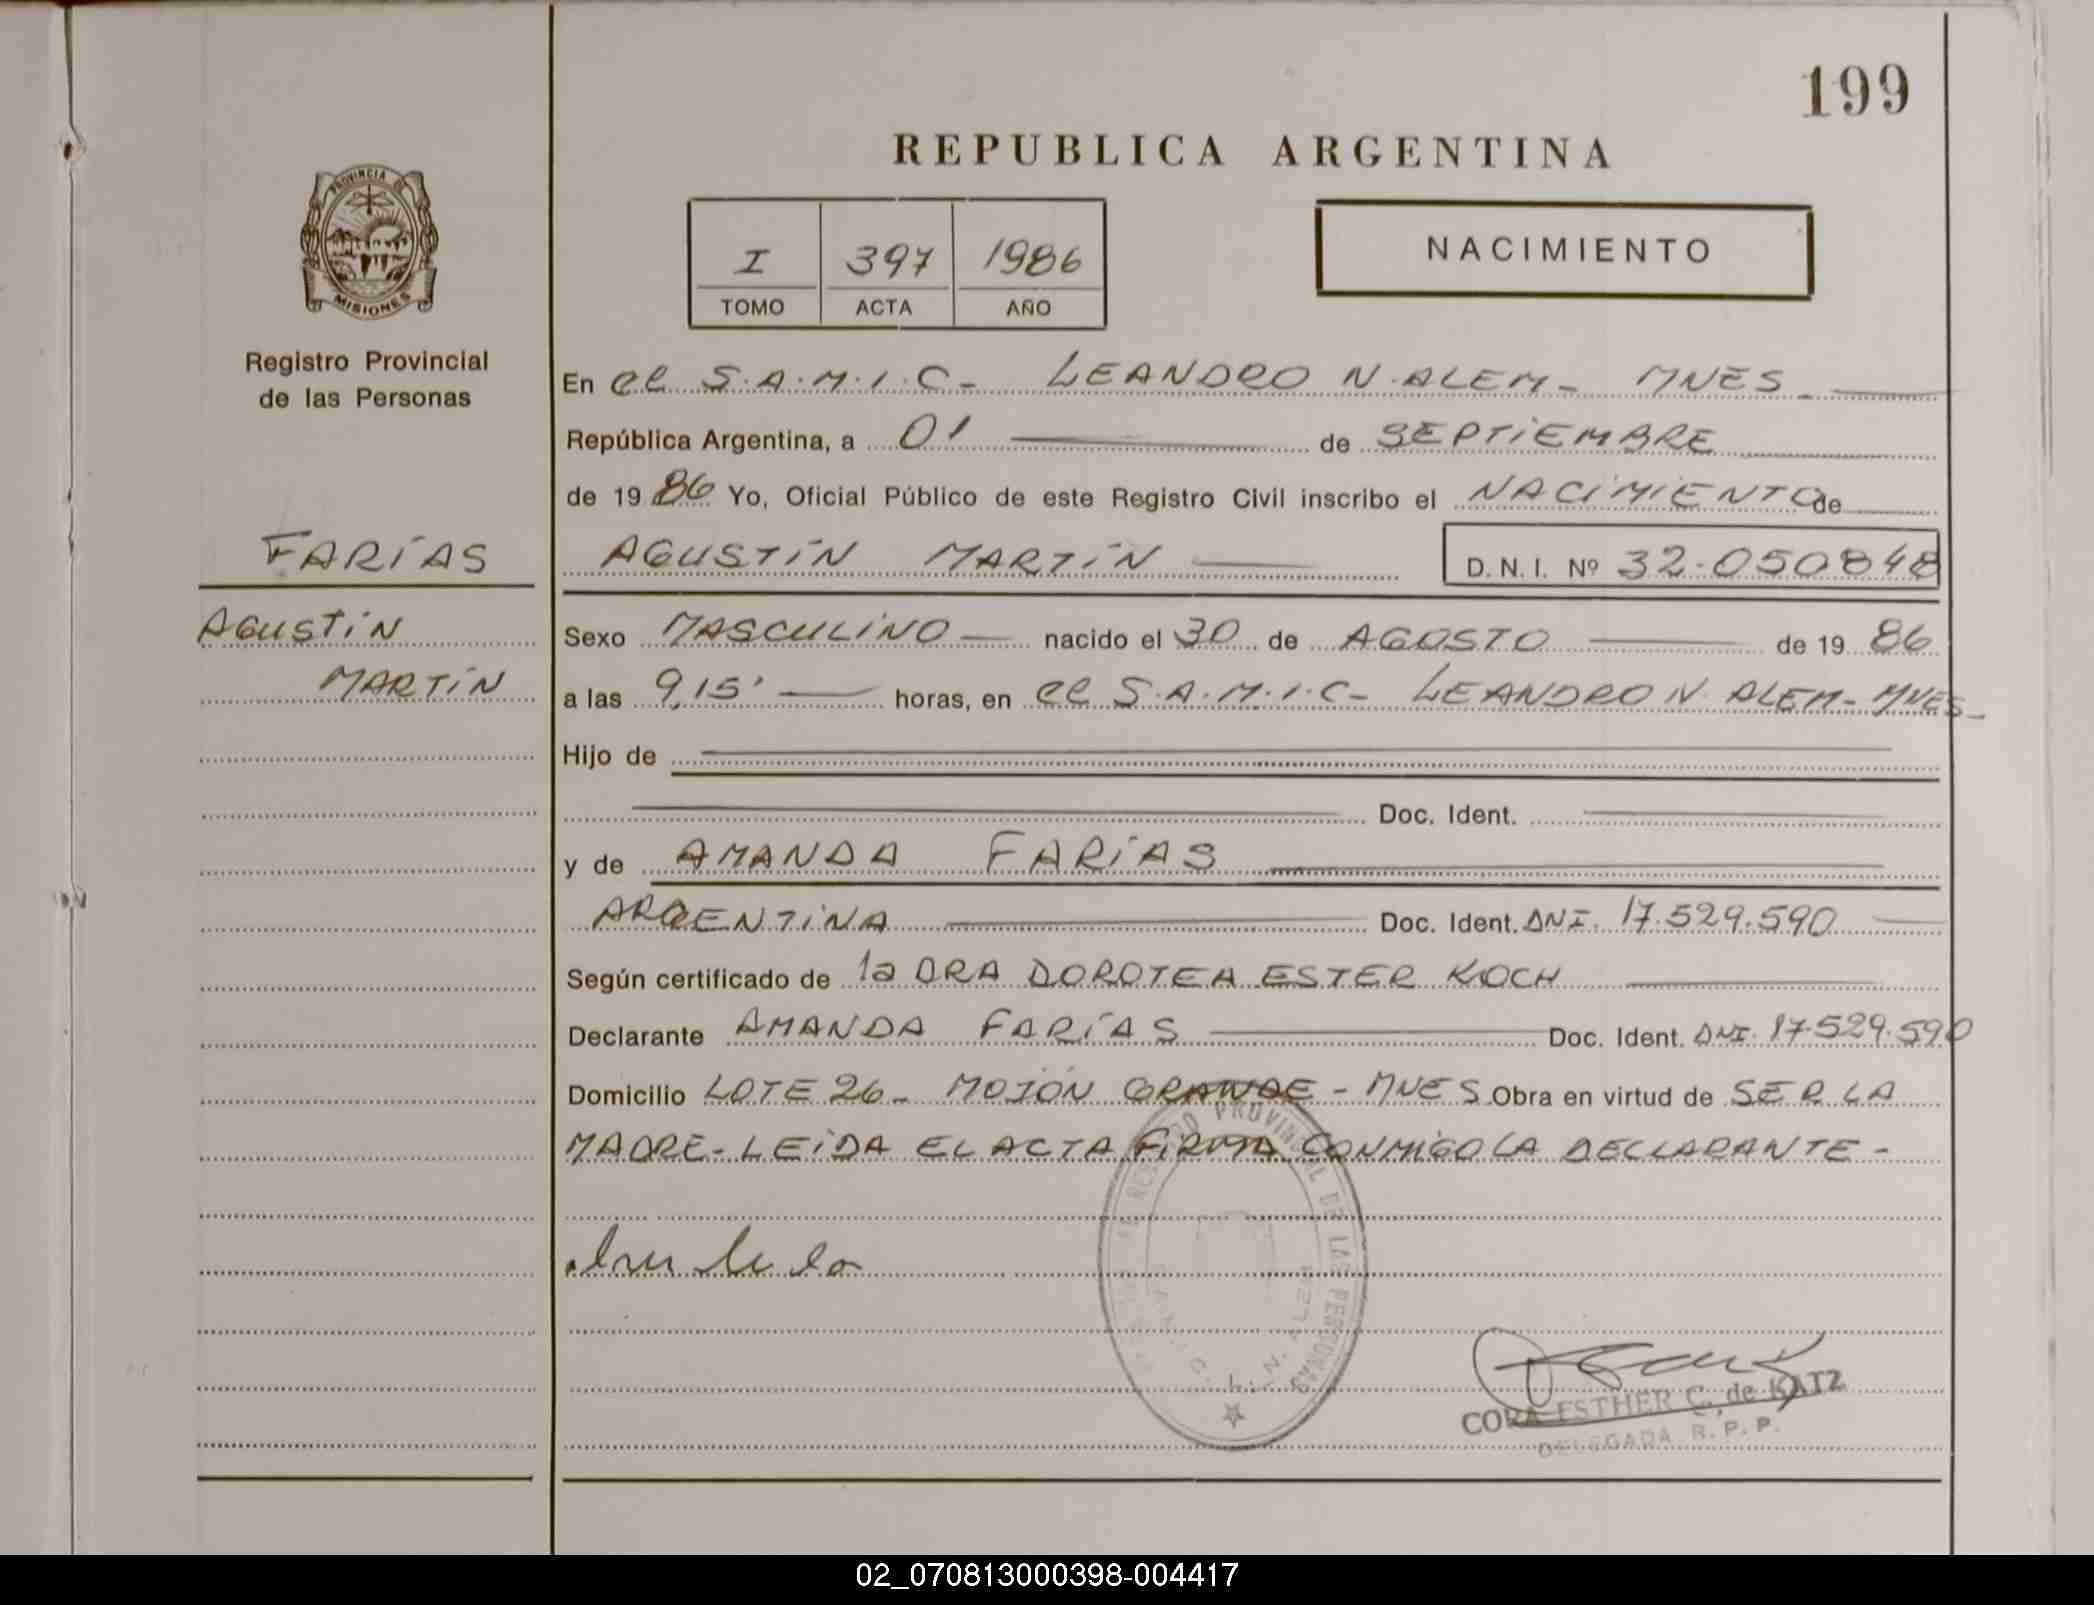 199
REPUBLICA ARGENTINA
PROVINCIA DE
MISIONES
Registro Provincial
de las Personas
I 397 1986
TOMO ACTA AÑO
NACIMIENTO
En el S.A.M.I.C- LEANDRO N. ALEM- MNES
República Argentina, a 01 de SEPTIEMBRE
de 19 86 Yo, Oficial Público de este Registro Civil inscribo el NACIMIENTO de
FARÍAS
AGUSTÍN MARTÍN
AGUSTÍN MARTÍN D. N. I. Nº 32.050848
Sexo MASCULINO nacido el 30 de AGOSTO de 19 86
a las 9,15' horas, en el S.A.M.I.C- LEANDRO N. ALEM- MNES-
Hijo de
Doc. Ident.
y de AMANDA FARÍAS
ARGENTINA Doc. Ident. DNI. 17.529.590
Según certificado de la DRA DOROTEA ESTER KOCH
Declarante AMANDA FARÍAS Doc. Ident. DNI. 17.529.590
Domicilio LOTE 26- MOJÓN GRANDE- MNES Obra en virtud de SER LA
MADRE- LEIDA EL ACTA FIRMA CONMIGO LA DECLARANTE-
REGISTRO PROVINCIAL DE LAS PERSONAS
L. N. ALEM
CORA ESTHER C. de KATZ
DELEGADA R. P. P.
02_070813000398-004417